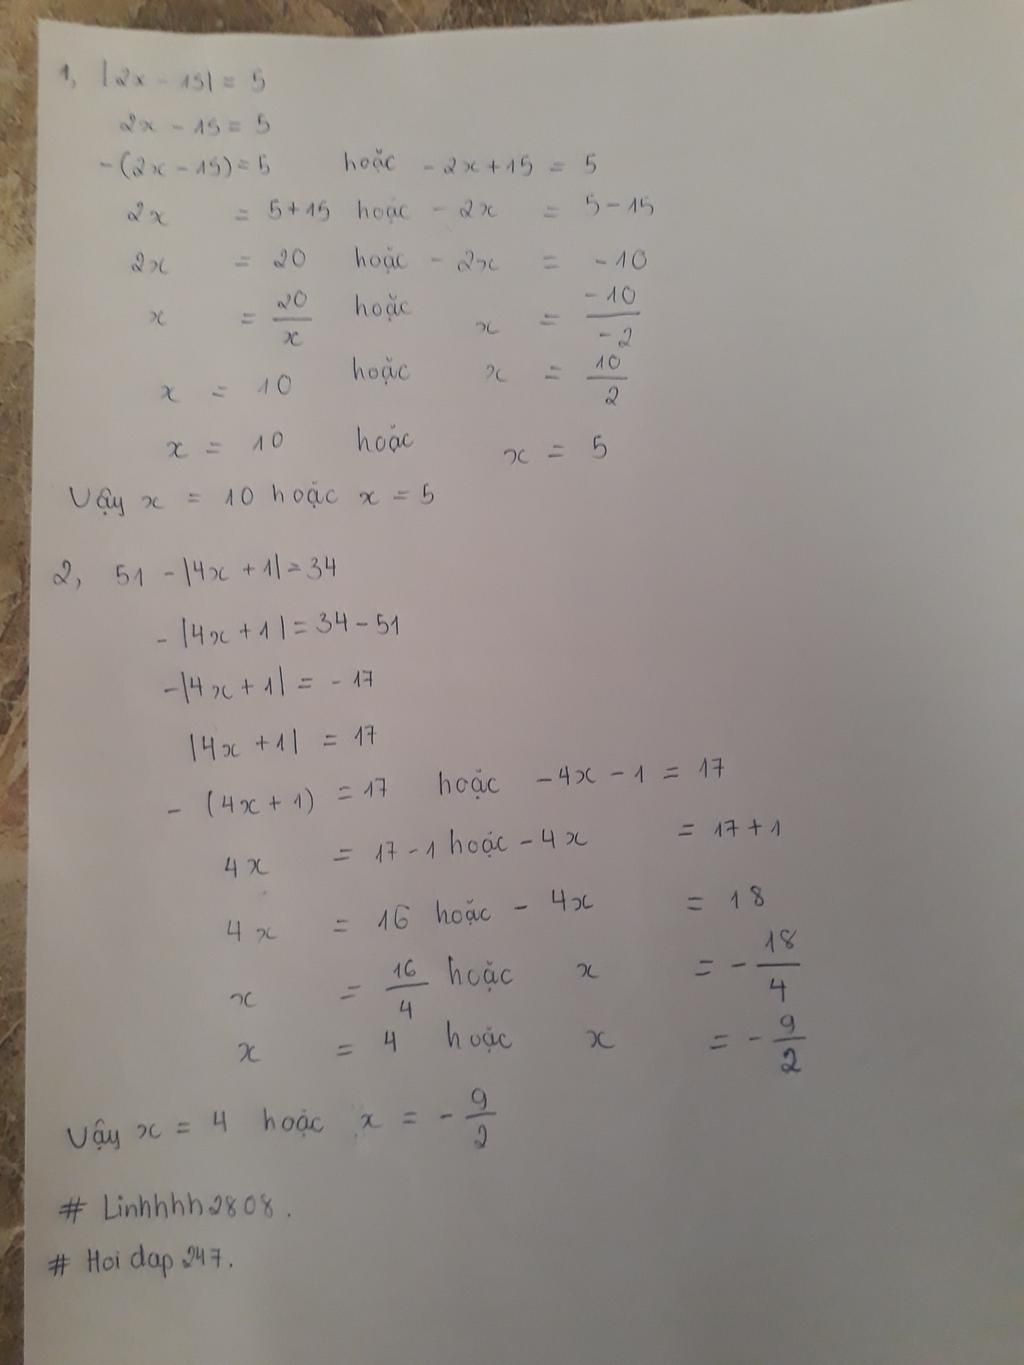 1, |2x - 15| = 5
2x - 15 = 5
-(2x - 15) = 5 hoặc - 2x + 15 = 5
2x = 5 + 15 hoặc - 2x = 5 - 15
2x = 20 hoặc - 2x = - 10
x = 20/x hoặc x = -10/-2
x = 10 hoặc x = 10/2
x = 10 hoặc x = 5
Vậy x = 10 hoặc x = 5
2, 51 - |4x + 1| = 34
- |4x + 1| = 34 - 51
- |4x + 1| = - 17
|4x + 1| = 17
- (4x + 1) = 17 hoặc - 4x - 1 = 17
4x = 17 - 1 hoặc - 4x = 17 + 1
4x = 16 hoặc - 4x = 18
x = 16/4 hoặc x = - 18/4
x = 4 hoặc x = - 9/2
Vậy x = 4 hoặc x = - 9/2
# Linhhhh2808.
# Hoi dap 247.